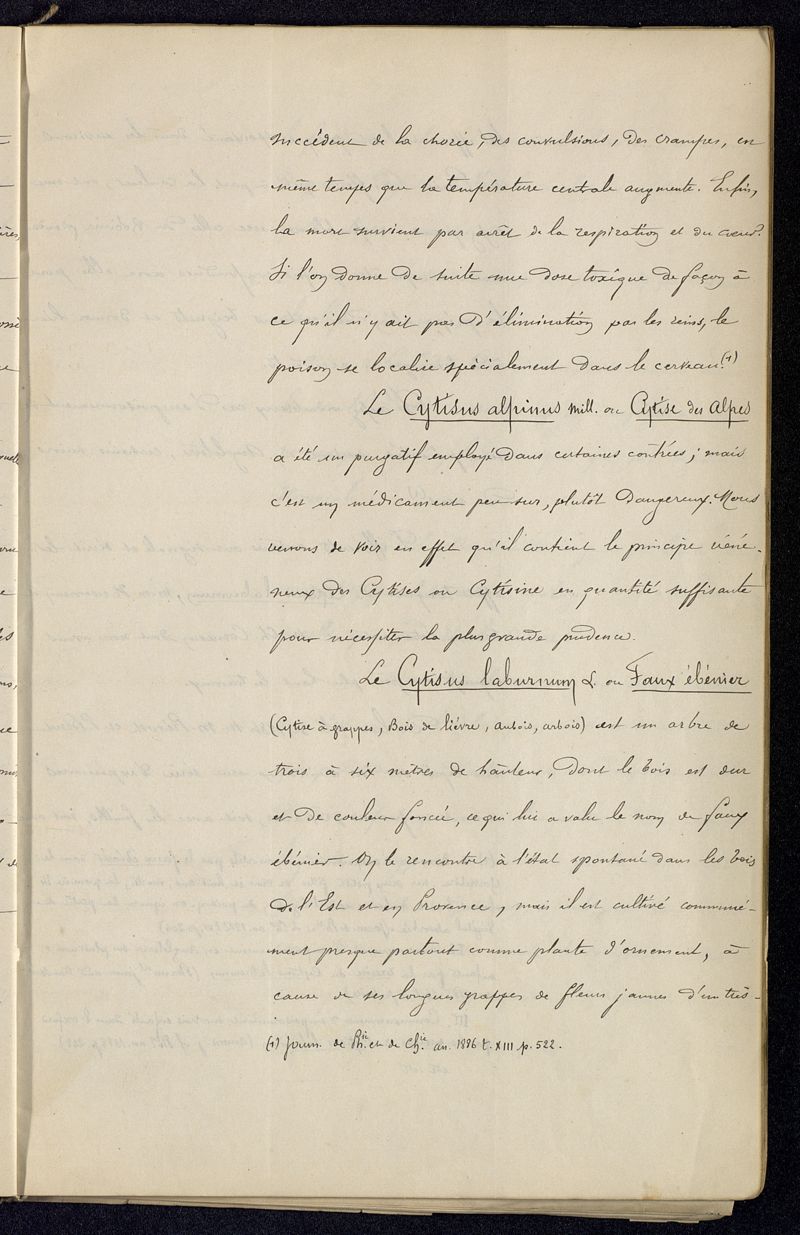 succèdent de la chorée, des convulsions, des crampes, en
même temps que la température centrale augmente. Enfin,
la mort survient par arrêt de la respiration et du cœur.
Si l'on donne de suite une dose toxique de façon à
ce qu'il n'y ait pas d'élimination par les reins, le
poison se localise spécialement dans le cerveau. (1)
Le Cytisus alpinus Mill. ou Cytise des Alpes
a été un purgatif employé dans certaines contrées; mais
c'est un médicament peu sûr, plutôt dangereux. Nous
venons de voir en effet qu'il contient le principe véné-
neux des Cytises ou Cytisine en quantité suffisante
pour nécessiter la plus grande prudence.
Le Cytisus laburnum L. ou Faux ébénier
(Cytise à grappes, Bois de lièvre, aubois, arbois) est un arbre de
trois à six mètres de hauteur, dont le bois est dur
et de couleur foncée, ce qui lui a valu le nom de faux
ébénier. On le rencontre à l'état spontané dans les bois
de l'Est et en Provence, mais il est cultivé communé-
ment presque partout comme plante d'ornement, à
cause de ses longues grappes de fleurs jaunes d'un très-
(1) Journ. de Phie et de Chie an. 1886 t. XIII p. 522.